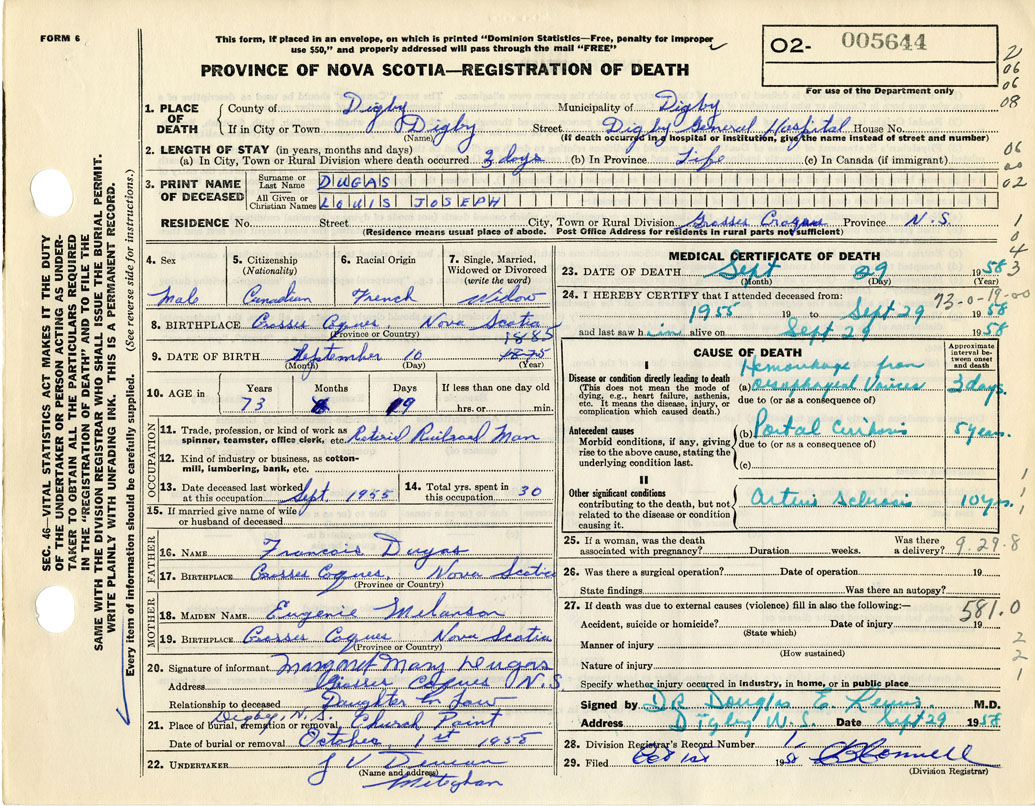 FORM 6
This form, if placed in an envelope, on which is printed "Dominion Statistics—Free, penalty for improper
use $50," and properly addressed will pass through the mail "FREE"
O2- 005644
For use of the Department only
PROVINCE OF NOVA SCOTIA—REGISTRATION OF DEATH
21
06
06
08
06
00
02
1
0
4
3
SEC. 46—VITAL STATISTICS ACT MAKES IT THE DUTY
OF THE UNDERTAKER OR PERSON ACTING AS UNDER-
TAKER TO OBTAIN ALL THE PARTICULARS REQUIRED
IN THE "REGISTRATION OF DEATH" AND TO FILE THE
SAME WITH THE DIVISION REGISTRAR WHO SHALL ISSUE THE BURIAL PERMIT.
WRITE PLAINLY WITH UNFADING INK. THIS IS A PERMANENT RECORD.
Every item of information should be carefully supplied. (See reverse side for instructions.)
1. PLACE OF DEATH
County of Digby Municipality of Digby
If in City or Town Digby Street Digby General Hospital House No.
(Name) (If death occurred in a hospital or institution, give the name instead of street and number)
2. LENGTH OF STAY (in years, months and days)
(a) In City, Town or Rural Division where death occurred 3 days (b) In Province Life (c) In Canada (if immigrant)
3. PRINT NAME OF DECEASED
Surname or Last Name DUGAS
All Given or Christian Names LOUIS JOSEPH
RESIDENCE No. Street City, Town or Rural Division Grosses Province N.S.
(Residence means usual place of abode. Post Office Address for residents in rural parts not sufficient)
4. Sex
Male
5. Citizenship
(Nationality)
Canadian
6. Racial Origin
French
7. Single, Married,
Widowed or Divorced
(write the word)
Widow
8. BIRTHPLACE Grosses Coques, Nova Scotia
(Province or Country)
1885
9. DATE OF BIRTH September 10 1875
(Month) (Day) (Year)
10. AGE in
Years
73
Months
Days
19
If less than one day old
hrs. or min.
OCCUPATION
11. Trade, profession, or kind of work as
spinner, teamster, office clerk, etc. Retired Railroad Man
12. Kind of industry or business, as cotton-
mill, lumbering, bank, etc.
13. Date deceased last worked
at this occupation Sept. 1955
14. Total yrs. spent in
this occupation 30
15. If married give name of wife
or husband of deceased
FATHER
16. NAME Francois Dugas
17. BIRTHPLACE Grosses Coques, Nova Scotia
(Province or Country)
MOTHER
18. MAIDEN NAME Eugenie Melanson
19. BIRTHPLACE Grosses Coques Nova Scotia
(Province or Country)
20. Signature of informant Margaret Mary Dugas
Address Grosses Coques N.S.
Relationship to deceased Daughter In Law
Digby, N.S.
21. Place of burial, cremation or removal Church Point
Date of burial or removal October, 1st 1958
22. UNDERTAKER
(Name and address)
Meteghan
MEDICAL CERTIFICATE OF DEATH
23. DATE OF DEATH Sept 29 1958
(Month) (Day) (Year)
24. I HEREBY CERTIFY that I attended deceased from: 73-0-19-00
1955 19 to Sept 29 1958
and last saw him alive on Sept 29 1958
CAUSE OF DEATH
Approximate
interval be-
tween onset
and death
I
Disease or condition directly leading to death
(This does not mean the mode of
dying, e.g., heart failure, asthenia,
etc. It means the disease, injury, or
complication which caused death.)
Hemorrhage from
(a) Oesophageal Varices 3 days.
due to (or as a consequence of)
Antecedent causes
Morbid conditions, if any, giving
rise to the above cause, stating the
underlying condition last.
(b) Portal Cirrhosis 5 years.
due to (or as a consequence of)
(c)
II
Other significant conditions
contributing to the death, but not
related to the disease or condition
causing it.
Arterio Sclerosis 10 yrs.
1
1
25. If a woman, was the death
associated with pregnancy? Duration weeks. Was there
a delivery? 9.29.8
26. Was there a surgical operation? Date of operation 19
State findings Was there an autopsy?
27. If death was due to external causes (violence) fill in also the following:— 581.0
Accident, suicide or homicide? Date of injury 19
(State which)
Manner of injury 2
(How sustained)
Nature of injury 2
Specify whether injury occurred in industry, in home, or in public place 1
Signed by DR Douglas E. Lewis. M.D.
Address Digby N.S. Date Sept 29 1958
28. Division Registrar's Record Number 1
29. Filed Oct 1st 1958
(Division Registrar)